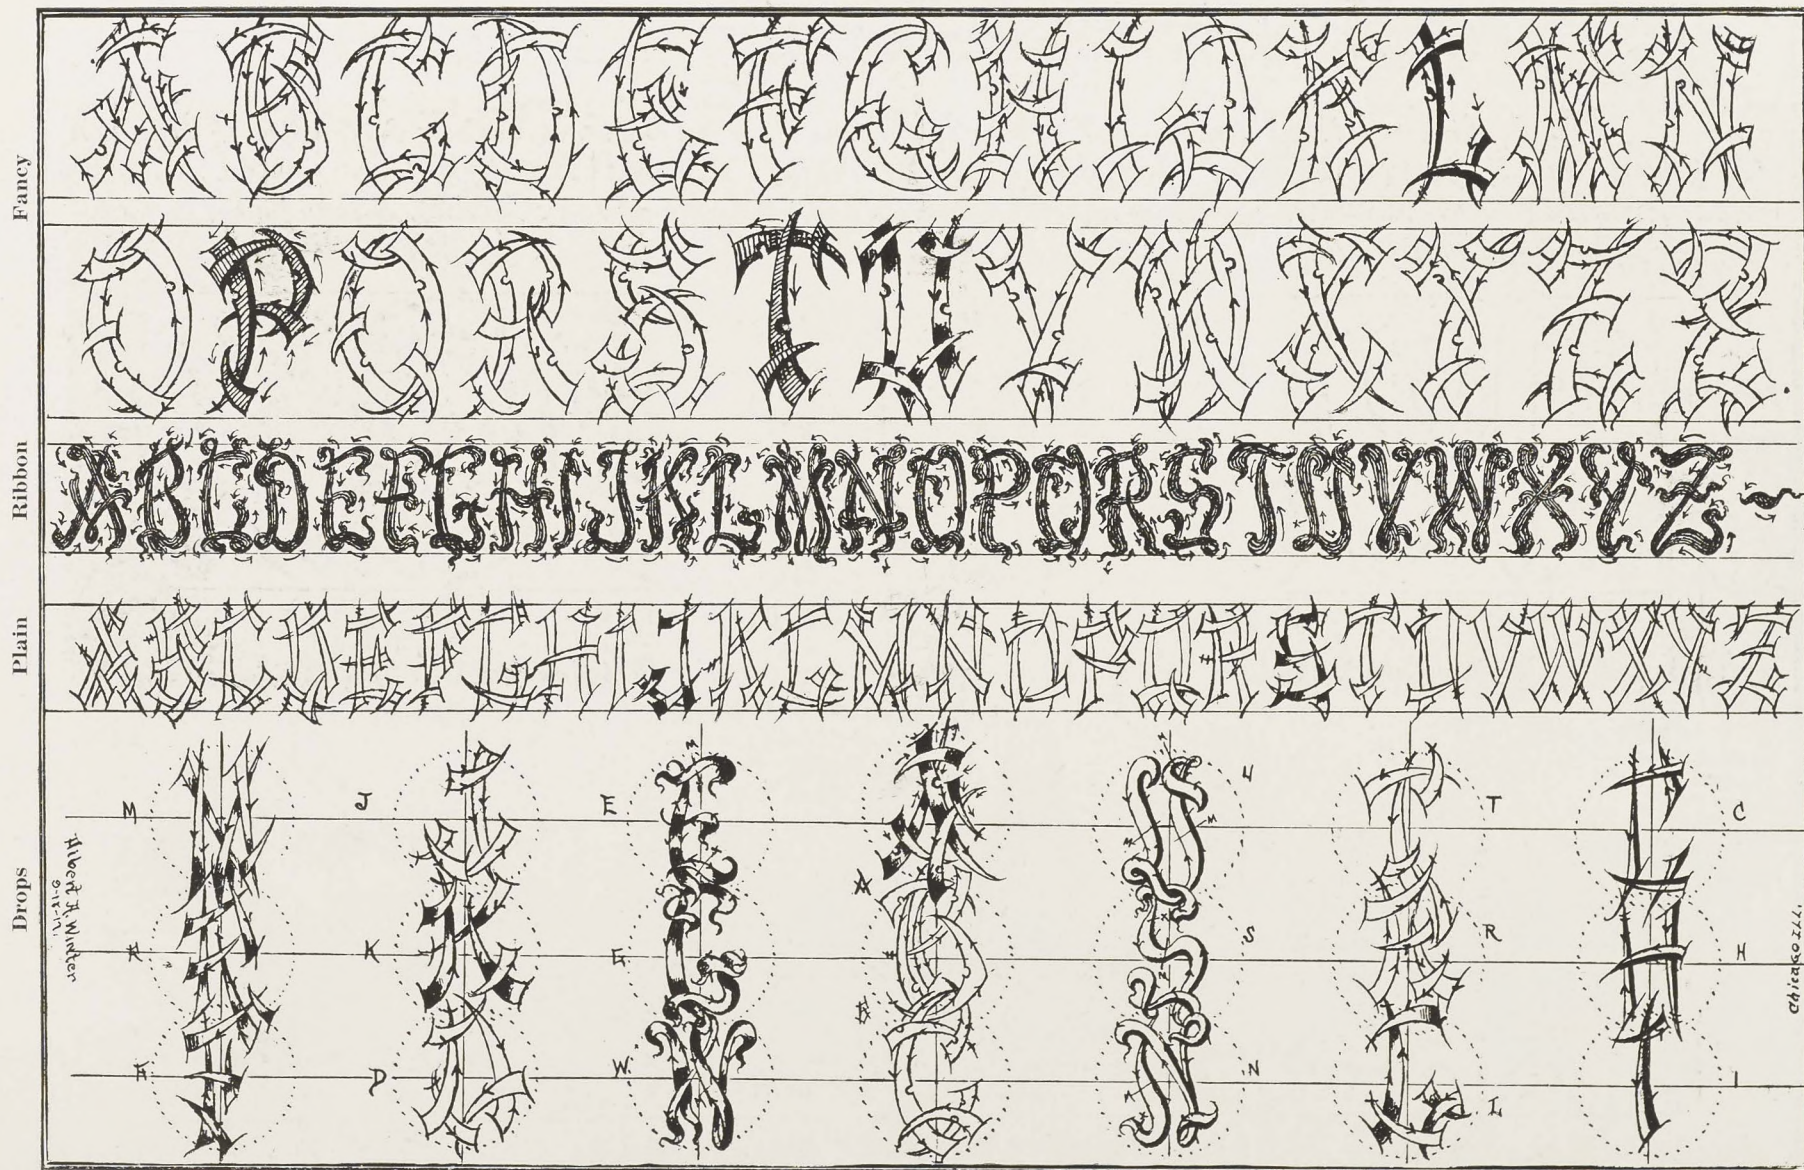 Fancy
A B C D E F G H I J K L M N
O P Q R S T U V W X Y Z &
Ribbon
A B C D E F G H I J K L M N O P Q R S T U V W X Y Z
Plain
A B C D E F G H I J K L M N O P Q R S T U V W X Y Z
Drops
M J E A U T C
R K G B S R H
H D W N L I
Albert A. Winter
Chicago ILL.